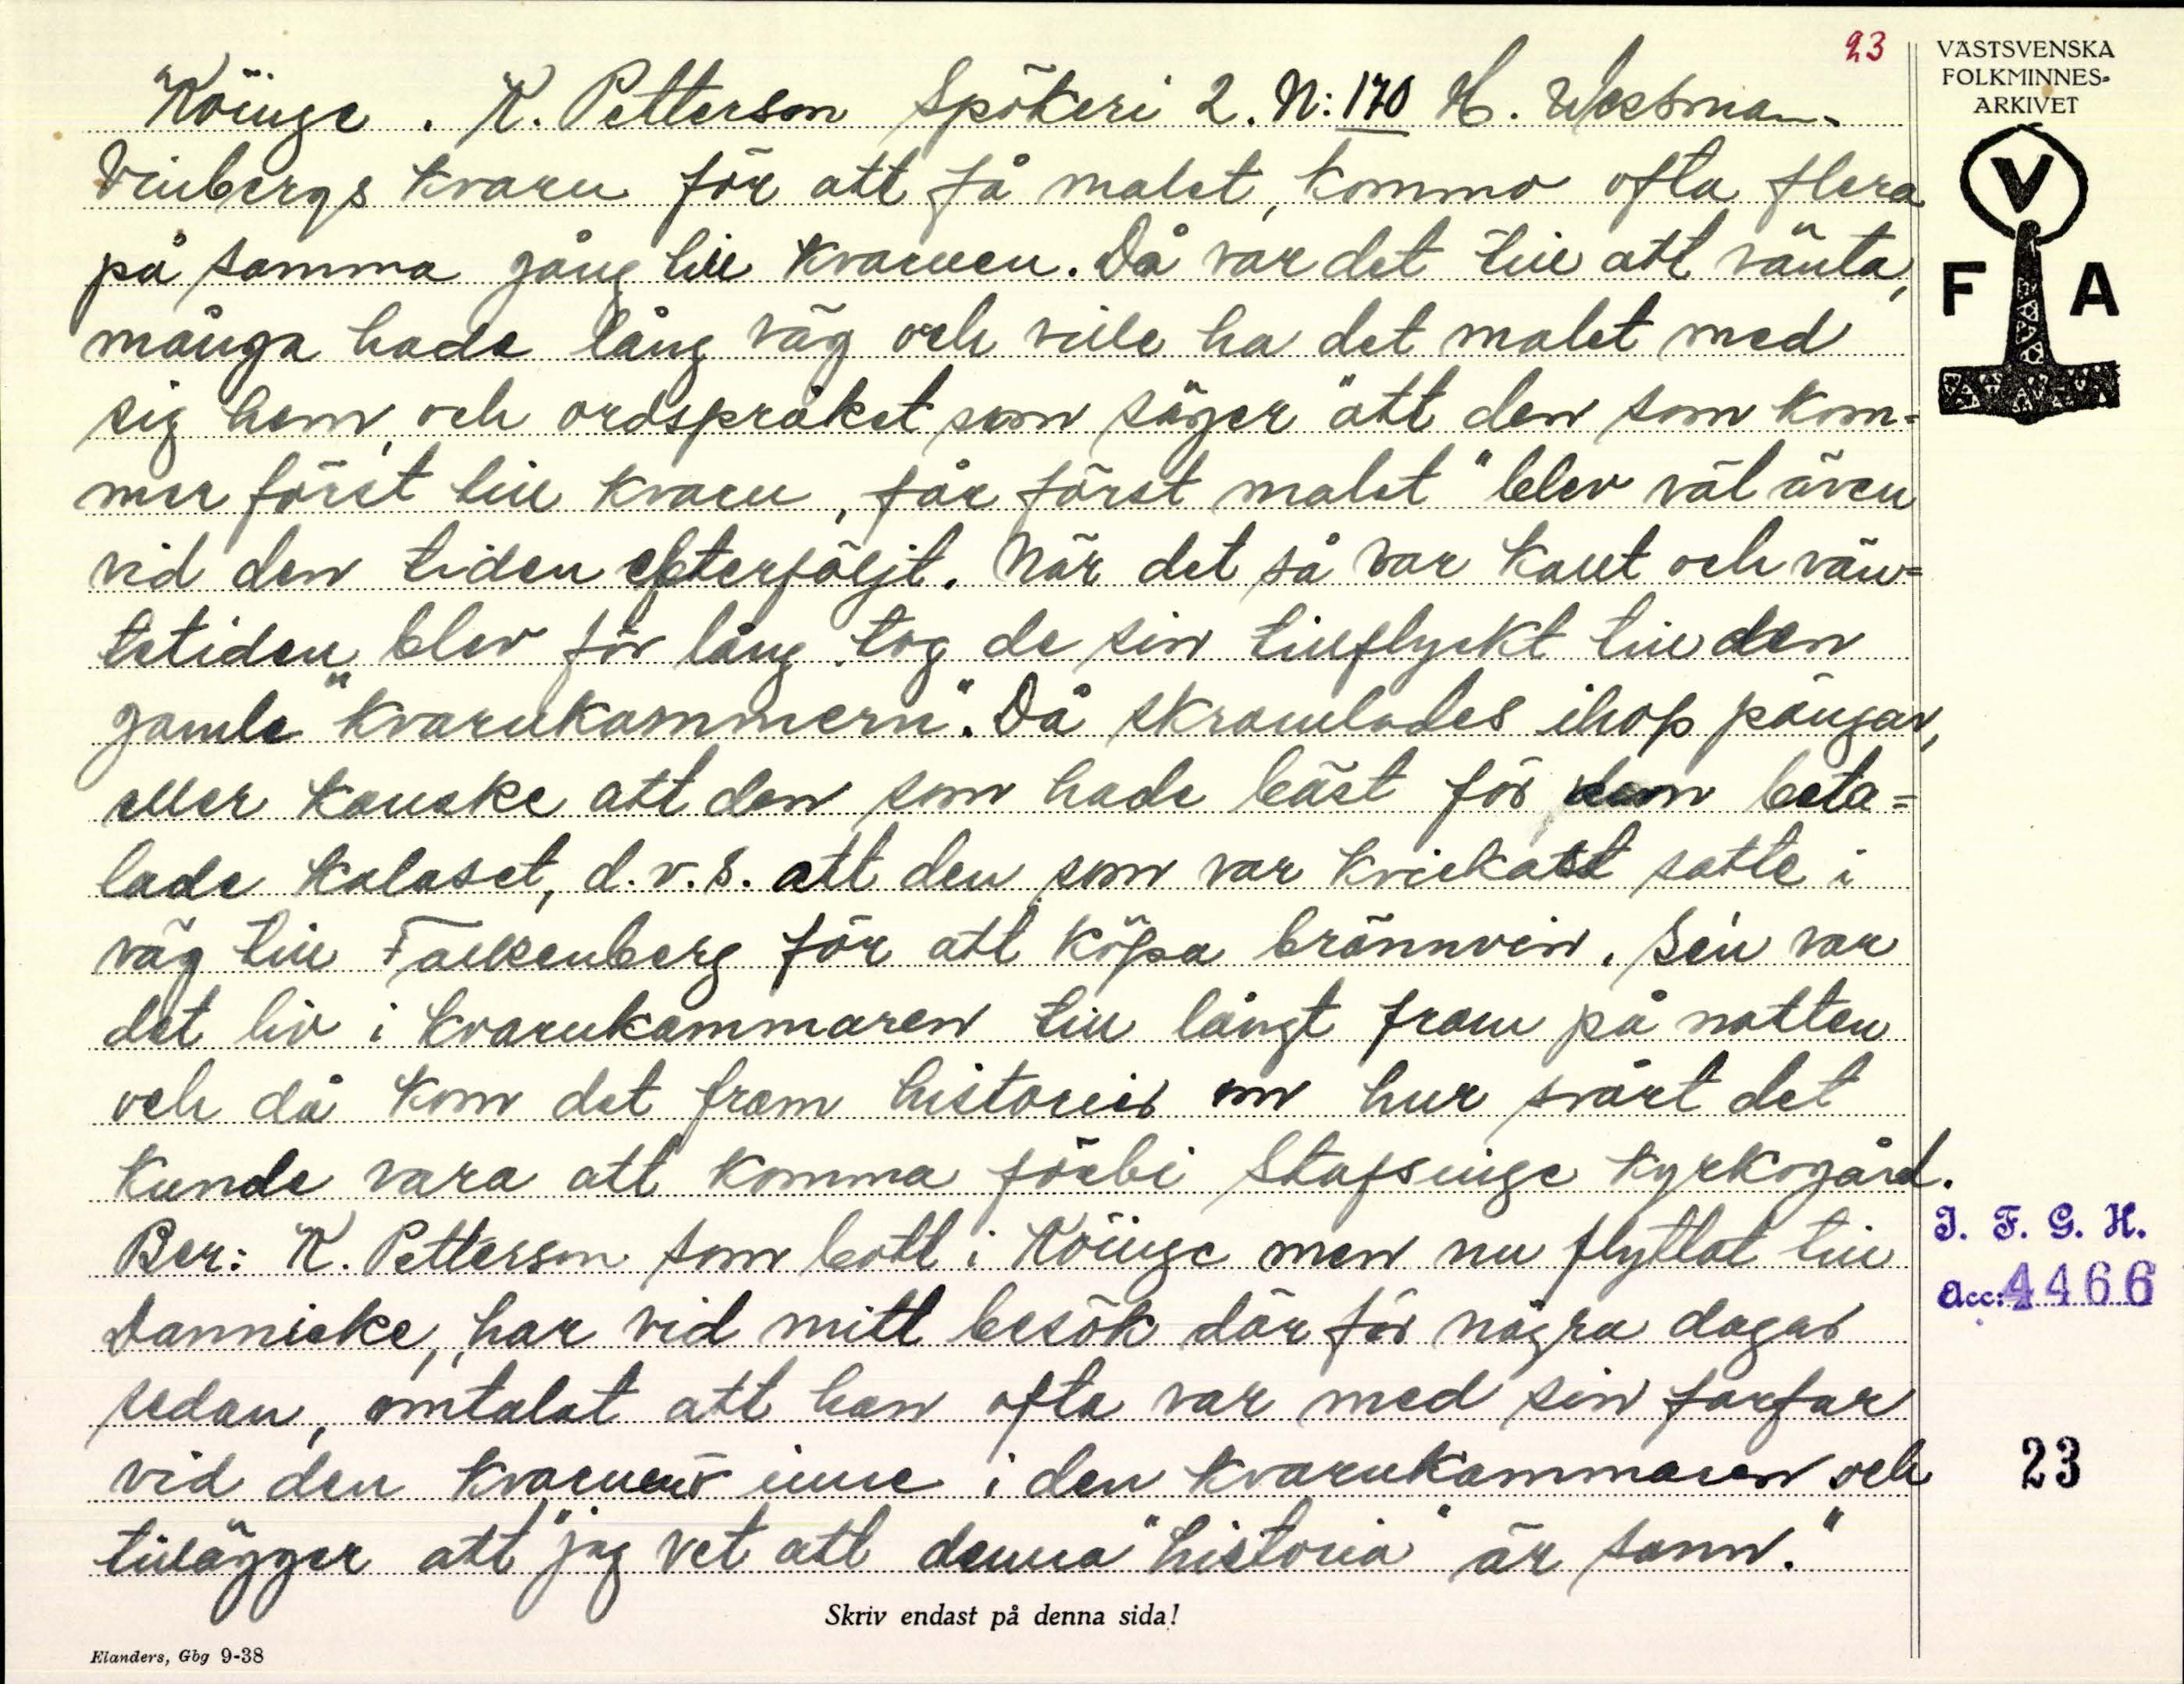 23
Köinge. K. Petterson Spökeri 2. N:170 H. Wessman.
Vinbergs kvarn för att få malet, kommo ofta flera
på samma gång till kvarnen. Då var det till att vänta,
många hade lång väg och ville ha det malet med
sig hem, och ordspråket som säger "att den som kom=
mer först till kvarn, får först malet" blev väl även
vid den tiden efterföljt. När det så var kallt och vän=
tetiden blev för lång tog de sin tillflyckt till den
gamle "kvarnkammern". Då skramlades ihop pängar,
eller kanske att den som hade bäst för dem beta=
lade kalaset, d.v.s. att den som var kvickast satte i
väg till Falkenberg för att köpa brännvin. Se'n var
det liv i kvarnkammaren till långt fram på natten
och då kom det fram historier om hur svårt det
kunde vara att komma förbi Stafsinge kyrkogård.
Ber: K. Petterson som bott i Köinge men nu flyttat till
Dannicke, har vid mitt besök där för några dagar
sedan, omtalat att han ofta var med sin farfar
vid den kvarnen inne i den kvarnkammaren och
tillägger att "jag vet att denna "historia" är sann."
Skriv endast på denna sida!
Elanders, Gbg 9-38
VÄSTSVENSKA
FOLKMINNES-
ARKIVET
V
F A
I. F. G. H.
Acc: 4466
23